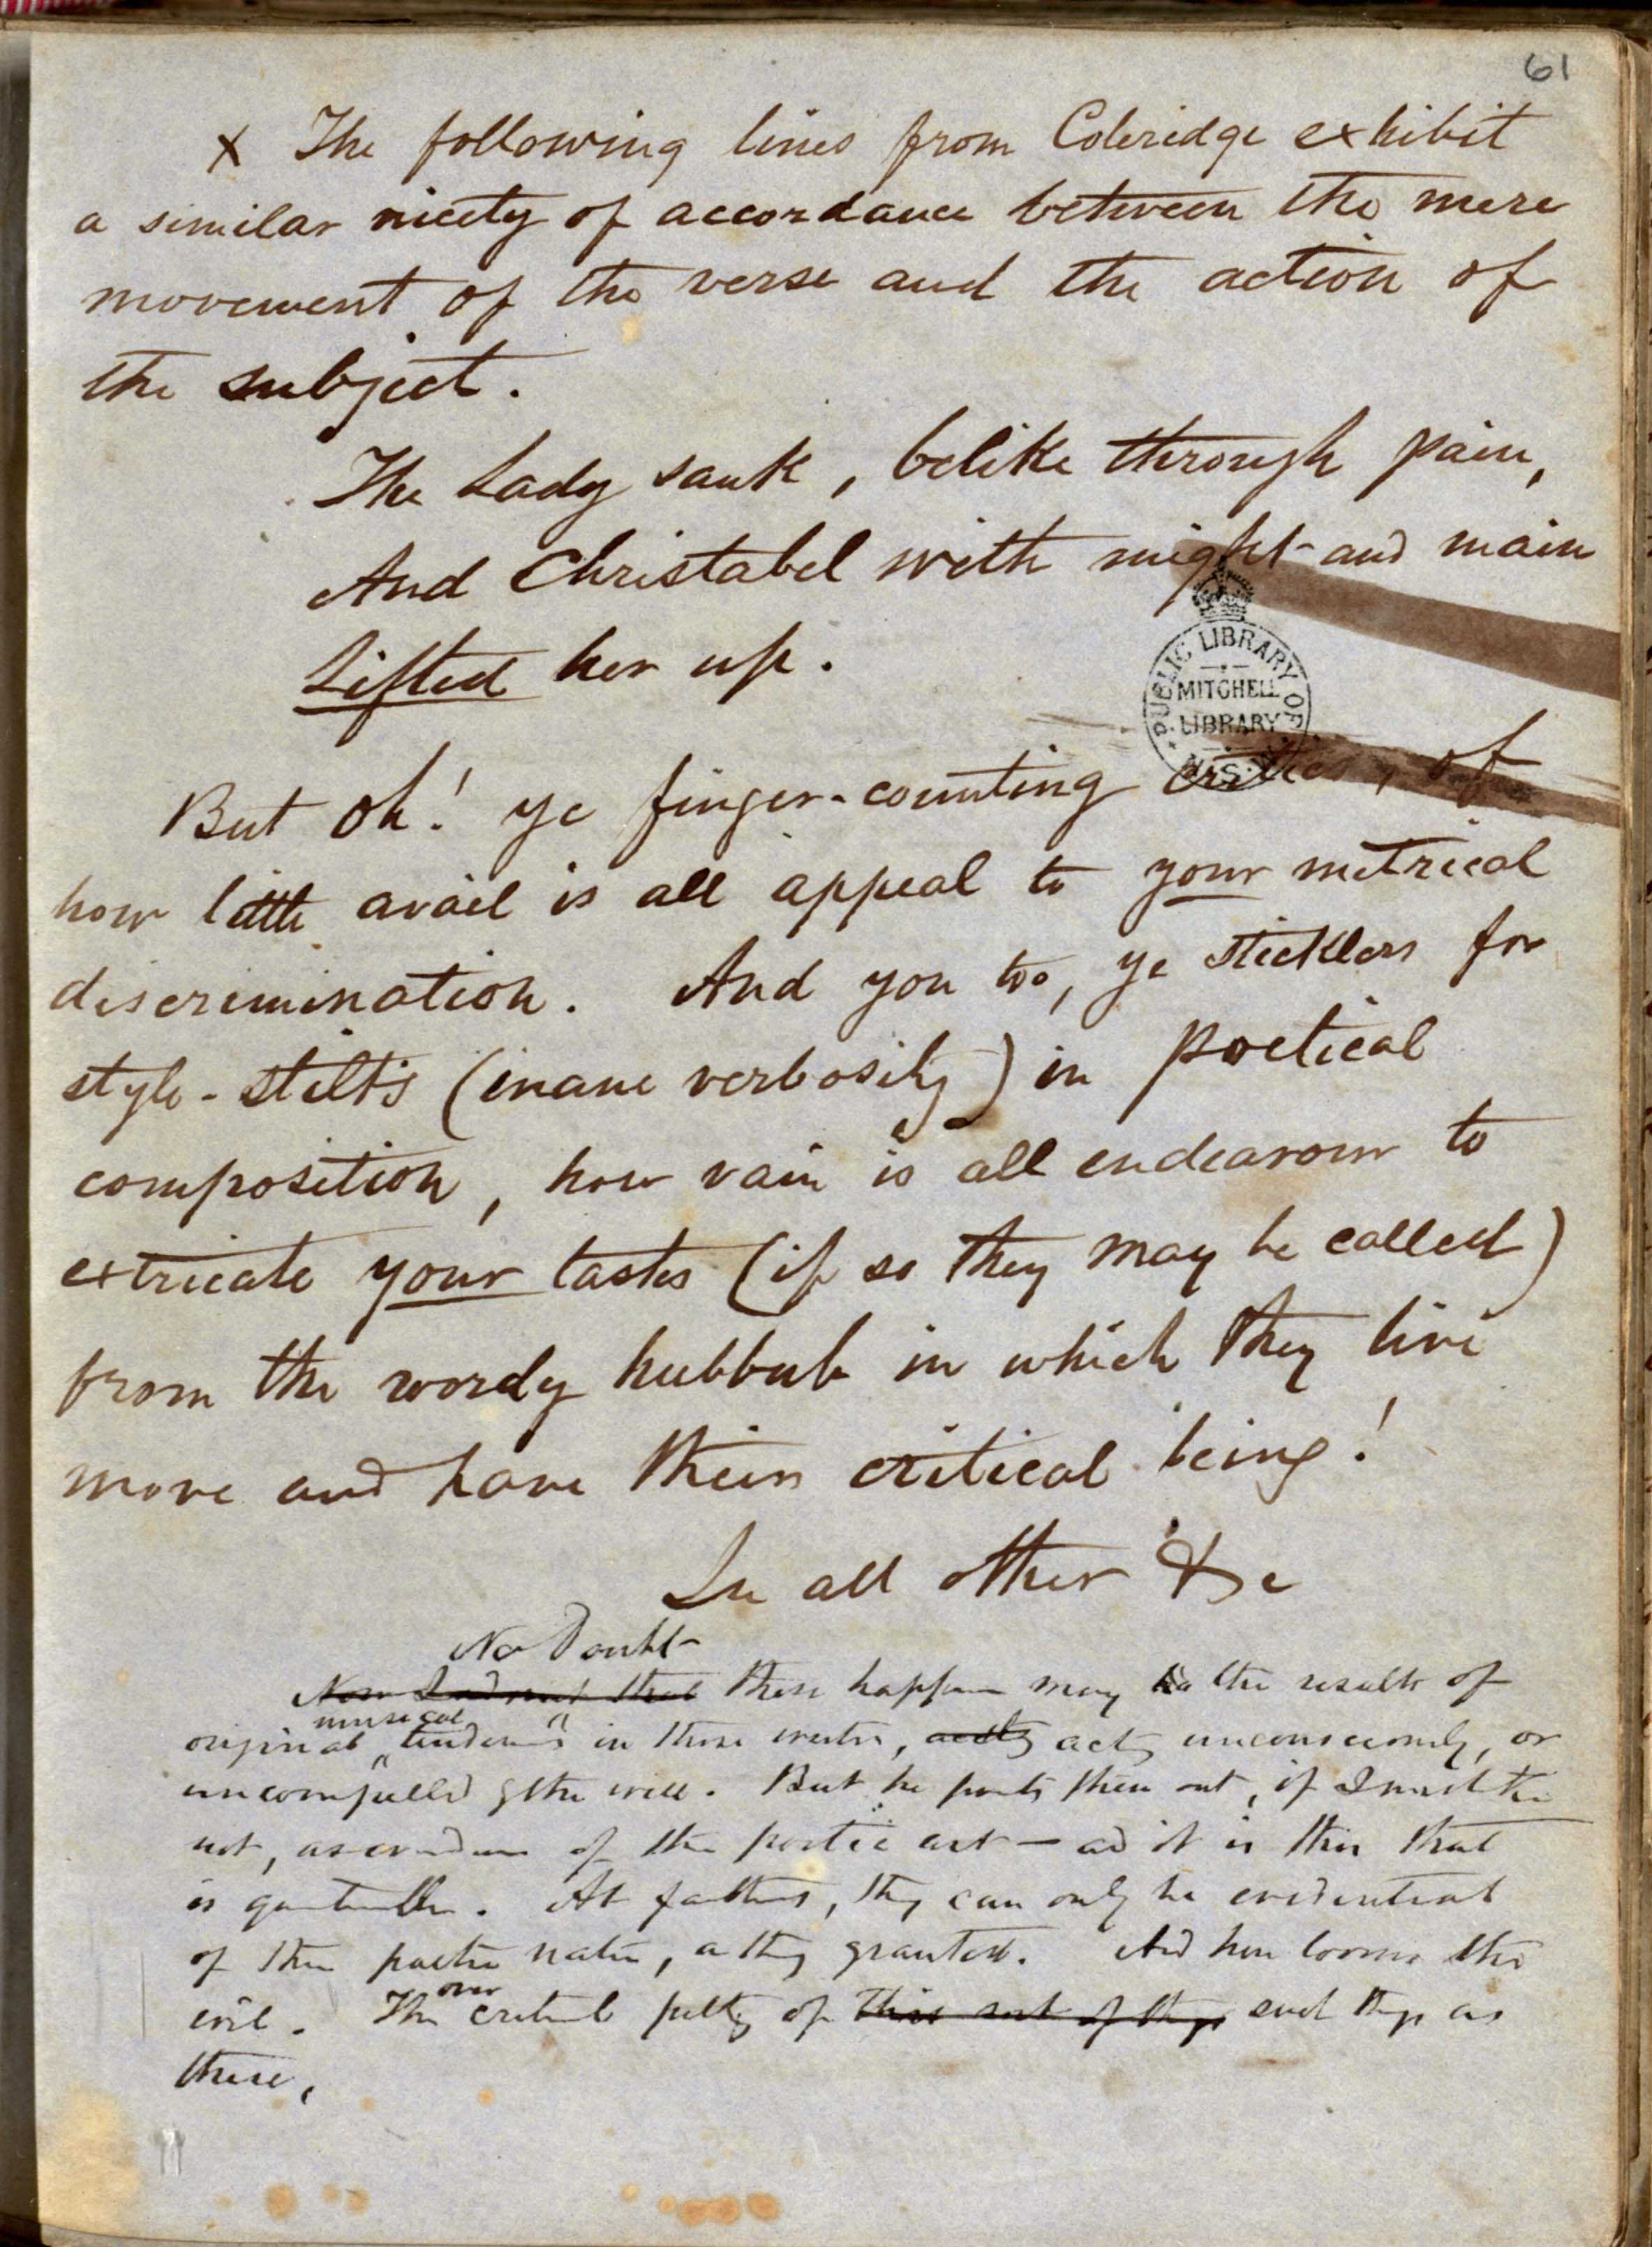 61
x The following lines from Coleridge exhibit
a similar nicety of accordance between the mere
movement of the verse and the action of
the subject.
The Lady sank, belike through pain,
And Christabel with might and main
Lifted her up.
PUBLIC LIBRARY OF N.S.W.
MITCHELL
LIBRARY
But oh! ye finger-counting critics, of
how little avail is all appeal to your metrical
discrimination. And you too, ye sticklers for
style-stilts (inane verbosity) in poetical
composition, how vain is all endeavour to
extricate your tastes (if so they may be called)
from the wordy hubbub in which they live
move and have their critical being!
In all other &c
No doubt
these may be the results of
musical
original in these acting unconsciously, or
uncompelled by the will. But he points them out, if I mistake
not, as of the poetic art — and it is this that
is. At farthest, they can only be evidential
of the poetic nature, granted. And here looms the
over
evil. The critical of this sort of things such things as
these,